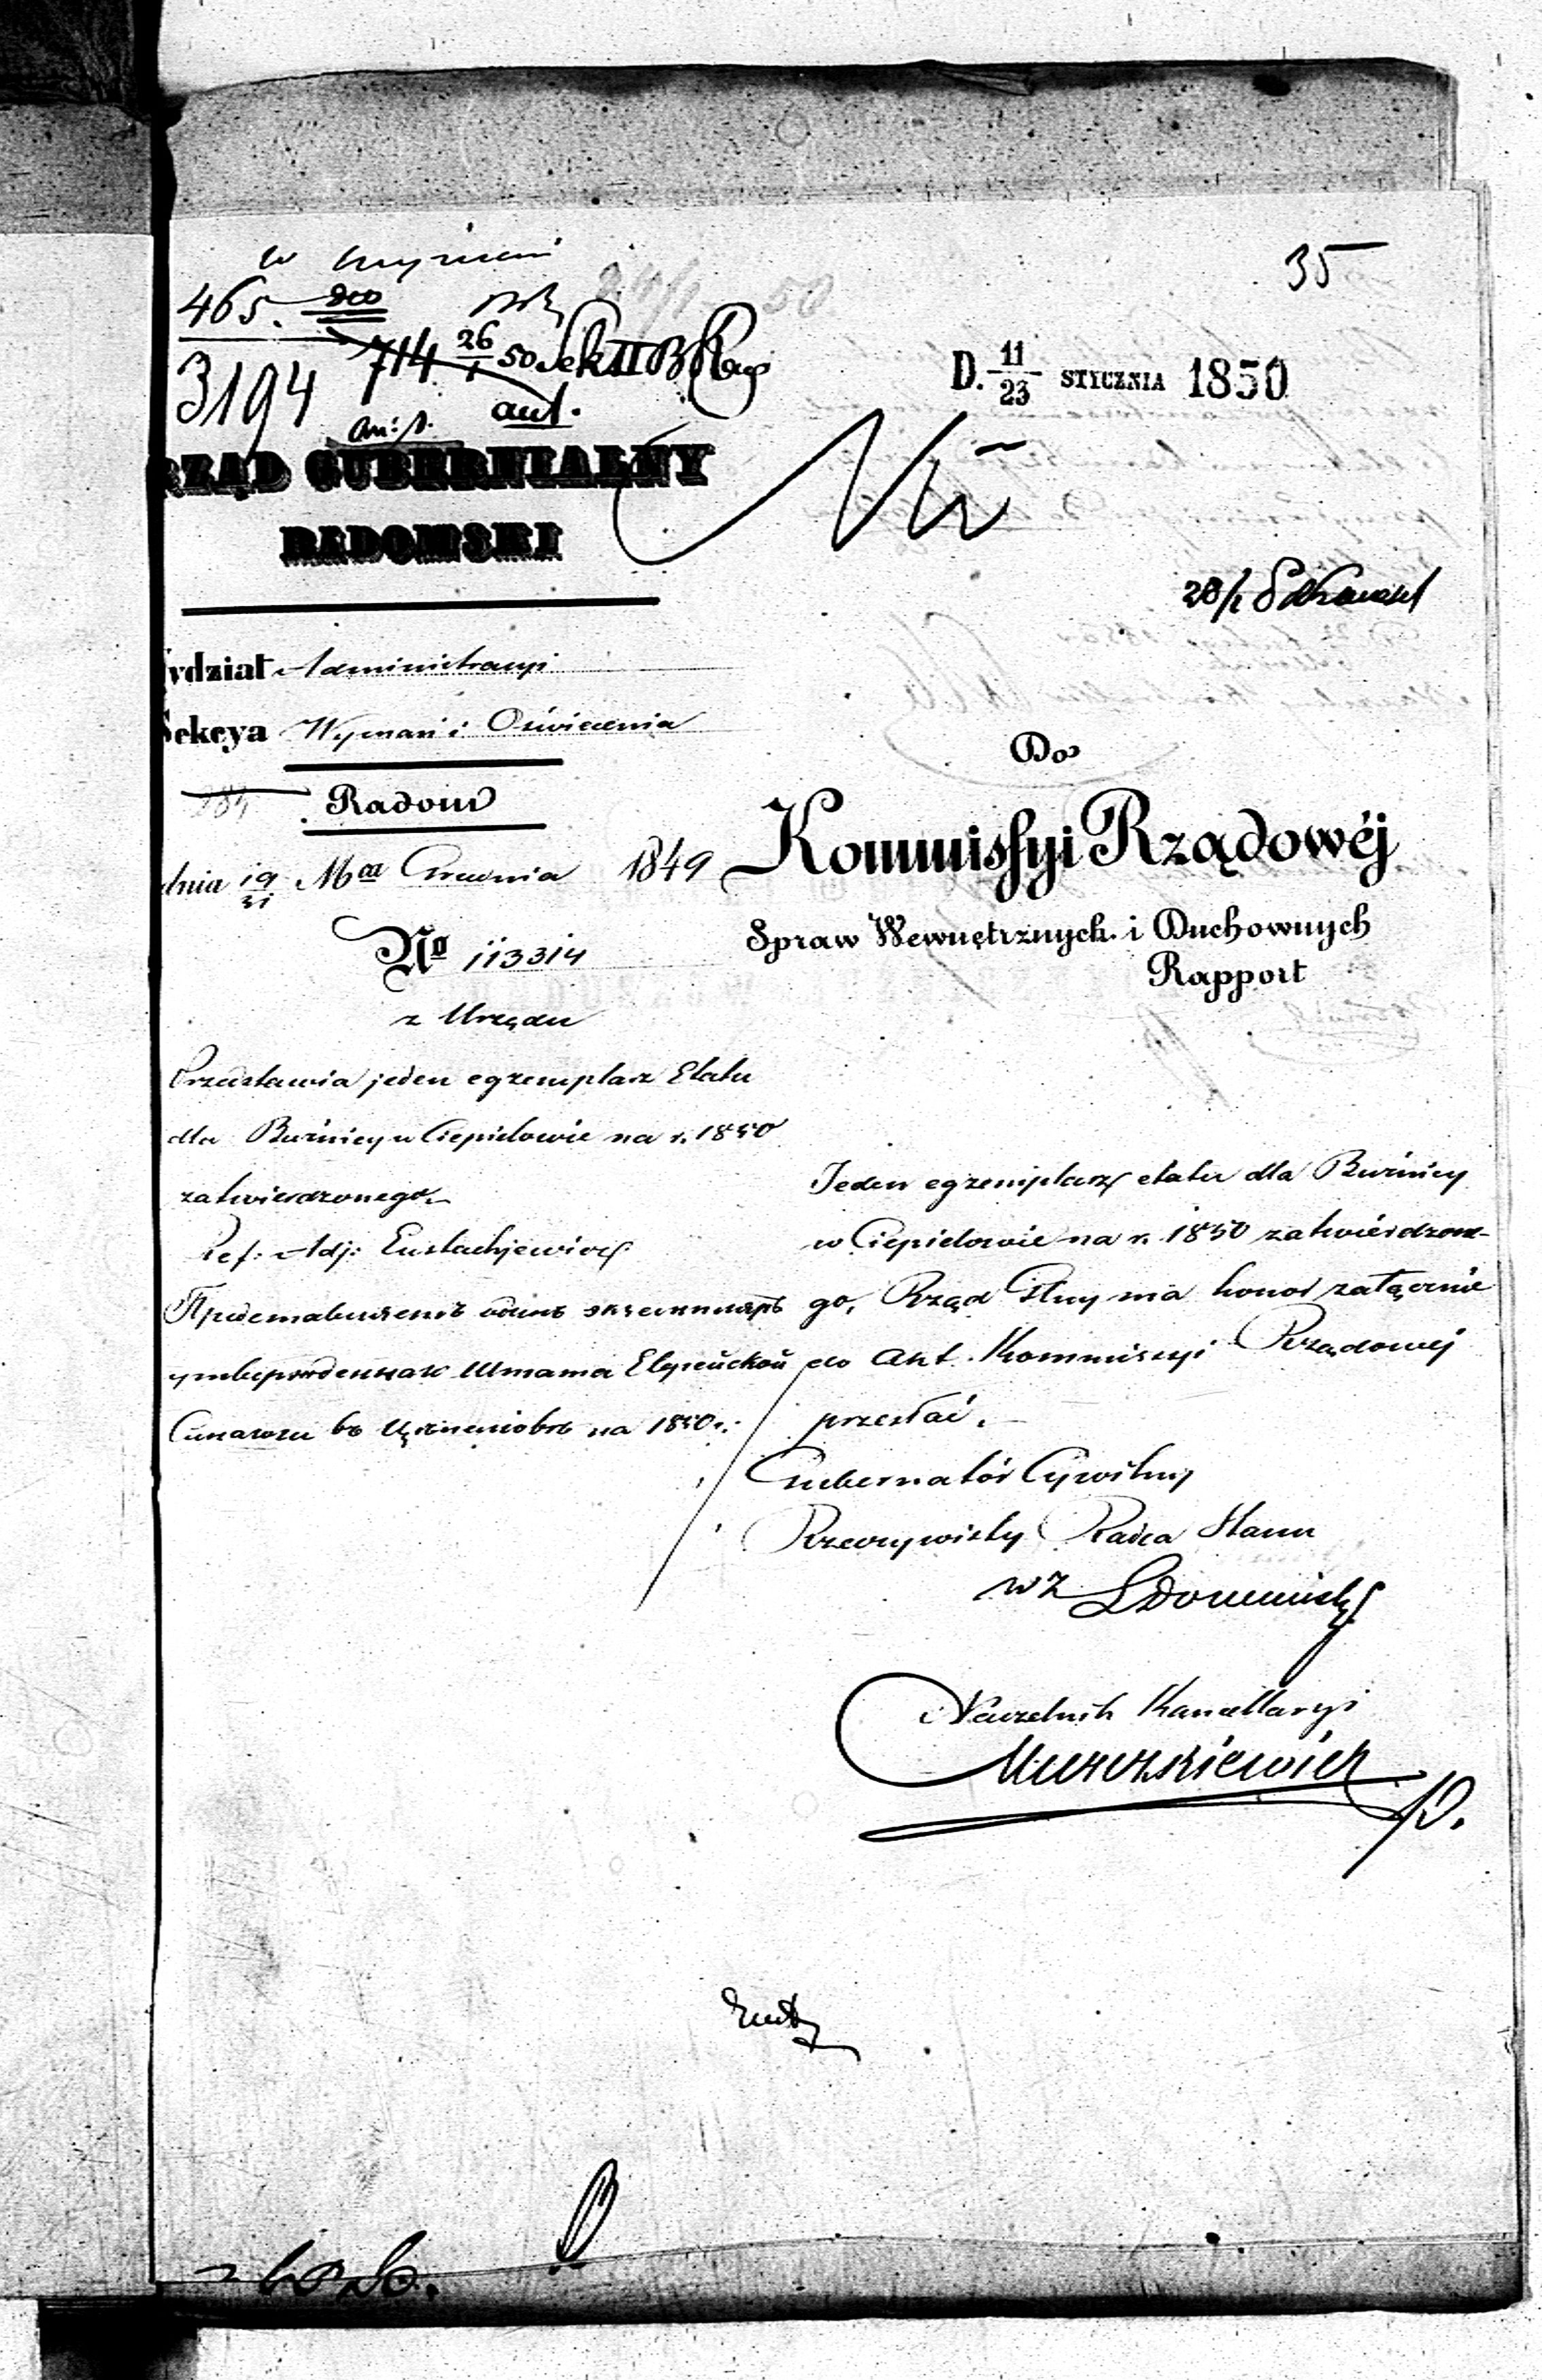 35
465.
3194
714 26/1 50 Sek II B
D. 11/23 STYCZNIA 1850
RZĄD GUBERNIALNY
RADOMSKI
ydział Administracyi
Sekcya Wyznań i Oświecenia
Radom
dnia 19/31 Mca 1849
No 113314
z Urzędu
Do
Kommissyi Rządowéj
Spraw Wewnętrznych i Duchownych
Rapport
Przedstawia jeden egzemplarz Etatu
dla Bużnicy w Ciepielowie na r. 1850
zatwierdzonego.
Ref: Adj: Eustachiewicz
одинъ экземпляръ
Штата Еврейской
въ на 1850 г.
Jeden egzemplarz etatu dla Bużnicy
w Ciepielowie na r. 1850 zatwierdzone-
go, Rząd Glny ma honor załącznie
do Akt Kommissyi Rządowej
przesłać.
Gubernator Cywilny
Rzeczywisty Radca Stanu
wz
Naczelnik Kancellaryi